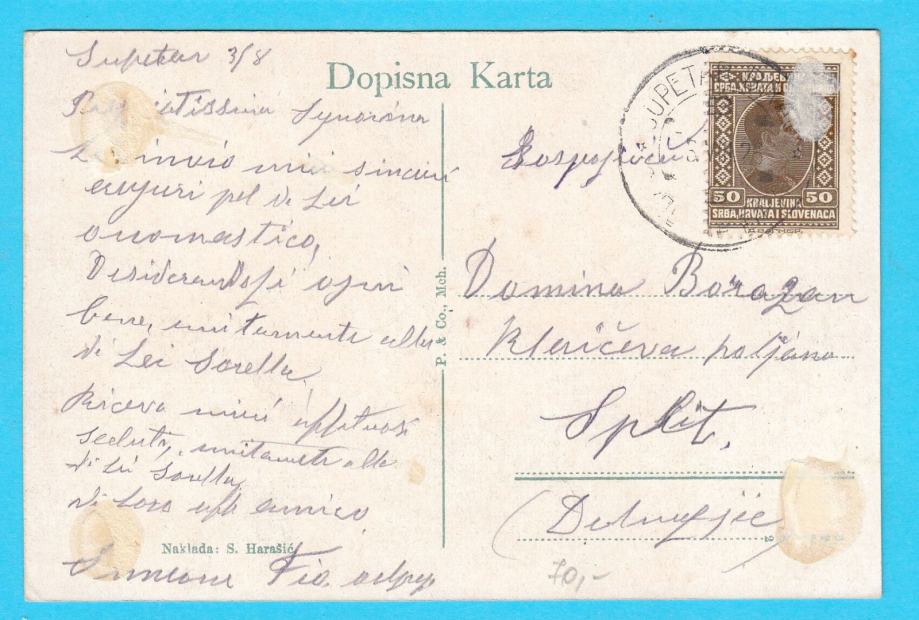 Supetar 3/8
Dopisna Karta
Signorina
Le invio miei sinceri
auguri pel di Lei
onomastico,
Desiderandogli ogni
bene, unitamente alla
di Lei Sorella.
Riceva miei affettuosi
saluti, unitamente alla
di Lei Sorella
di Loro aff. amico
Simeone
Nakladа: S. Harašić
P. & Co., Mch.
SUPETAR
КРАЉЕВИНА
СРБА, ХРВАТА И СЛОВЕНАЦА
50 50
KRALJEVINA
SRBA, HRVATA I SLOVENACA
Gospojica
Domina Borazan
poljana
Split,
70,-